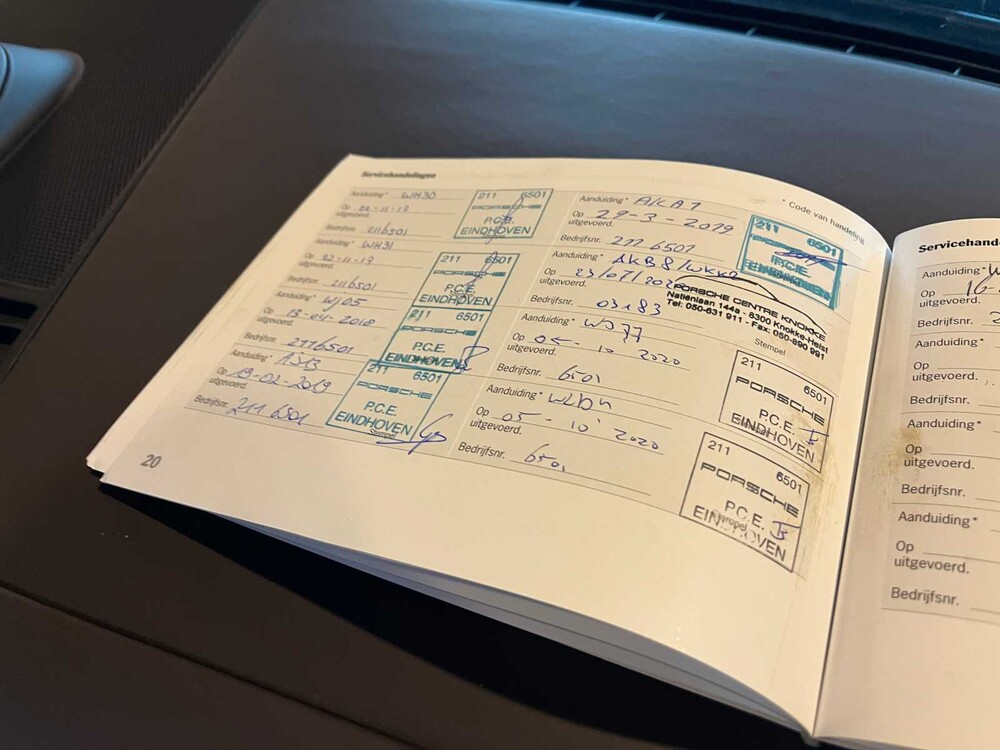 Servicehandelingen
Aanduiding* WH30
Op 22-11-17
uitgevoerd.
Bedrijfsnr. 2116501
211 6501
PORSCHE
P.C.E.
EINDHOVEN
Aanduiding* WH31
Op 22-11-17
uitgevoerd.
Bedrijfsnr. 2116501
211 6501
PORSCHE
P.C.E.
EINDHOVEN
Aanduiding* WJ05
Op 13-04-2018
uitgevoerd.
Bedrijfsnr. 2116501
211 6501
PORSCHE
P.C.E.
EINDHOVEN
Aanduiding*
Op 19-02-2019
uitgevoerd.
Bedrijfsnr. 211 6501
211 6501
PORSCHE
P.C.E.
EINDHOVEN
Stempel
20
* Code van handeling
Aanduiding* AKA1
Op 29-3-2019
uitgevoerd.
Bedrijfsnr. 211 6501
211 6501
PORSCHE
P.C.E.
EINDHOVEN
Aanduiding* AKB8/WKK2
Op 23/07/2020
uitgevoerd.
Bedrijfsnr. 03183
PORSCHE CENTRE KNOKKE
Natiënlaan 144a - 8300 Knokke-Heist
Tel: 050-631 911 - Fax: 050-890 991
Stempel
Aanduiding* WJ77
Op 05-10 2020
uitgevoerd.
Bedrijfsnr. 6501
211 6501
PORSCHE
P.C.E.
EINDHOVEN
Aanduiding*
Op 05-10 2020
uitgevoerd.
Bedrijfsnr. 6501
211 6501
PORSCHE
P.C.E.
EINDHOVEN
Stempel
Aanduiding* W
Op 16-
uitgevoerd.
Bedrijfsnr.
Aanduiding*
Op
uitgevoerd.
Bedrijfsnr.
Aanduiding*
Op
uitgevoerd.
Bedrijfsnr.
Aanduiding*
Op
uitgevoerd.
Bedrijfsnr.